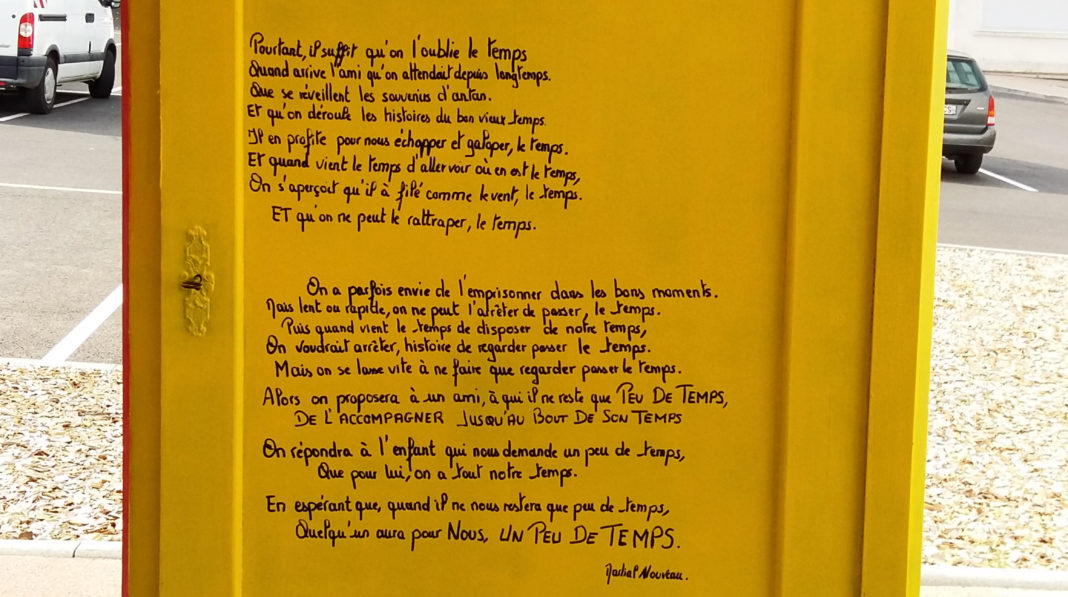 Pourtant, il suffit qu'on l'oublie le temps
Quand arrive l'ami qu'on attendait depuis longtemps.
Que se réveillent les souvenirs d'antan.
Et qu'on déroule les histoires du bon vieux temps.
Il en profite pour nous échapper et galoper, le temps.
Et quand vient le temps d'aller voir où en est le temps,
On s'aperçoit qu'il à filé comme le vent, le temps.
ET qu'on ne peut le rattraper, le temps.
On a parfois envie de l'emprisonner dans les bons moments.
Mais lent ou rapide, on ne peut l'arrêter de passer, le temps.
Puis quand vient le temps de disposer de notre temps,
On voudrait arrêter, histoire de regarder passer le temps.
Mais on se lasse vite à ne faire que regarder passer le temps.
Alors on proposera à un ami, à qui il ne reste que PEU DE TEMPS,
DE L'ACCOMPAGNER JUSQU'AU BOUT DE SON TEMPS
On répondra à l'enfant qui nous demande un peu de temps,
Que pour lui, on a tout notre temps.
En espérant que, quand il ne nous restera que peu de temps,
Quelqu'un aura pour Nous, UN PEU DE TEMPS.
Martial Nouveau.